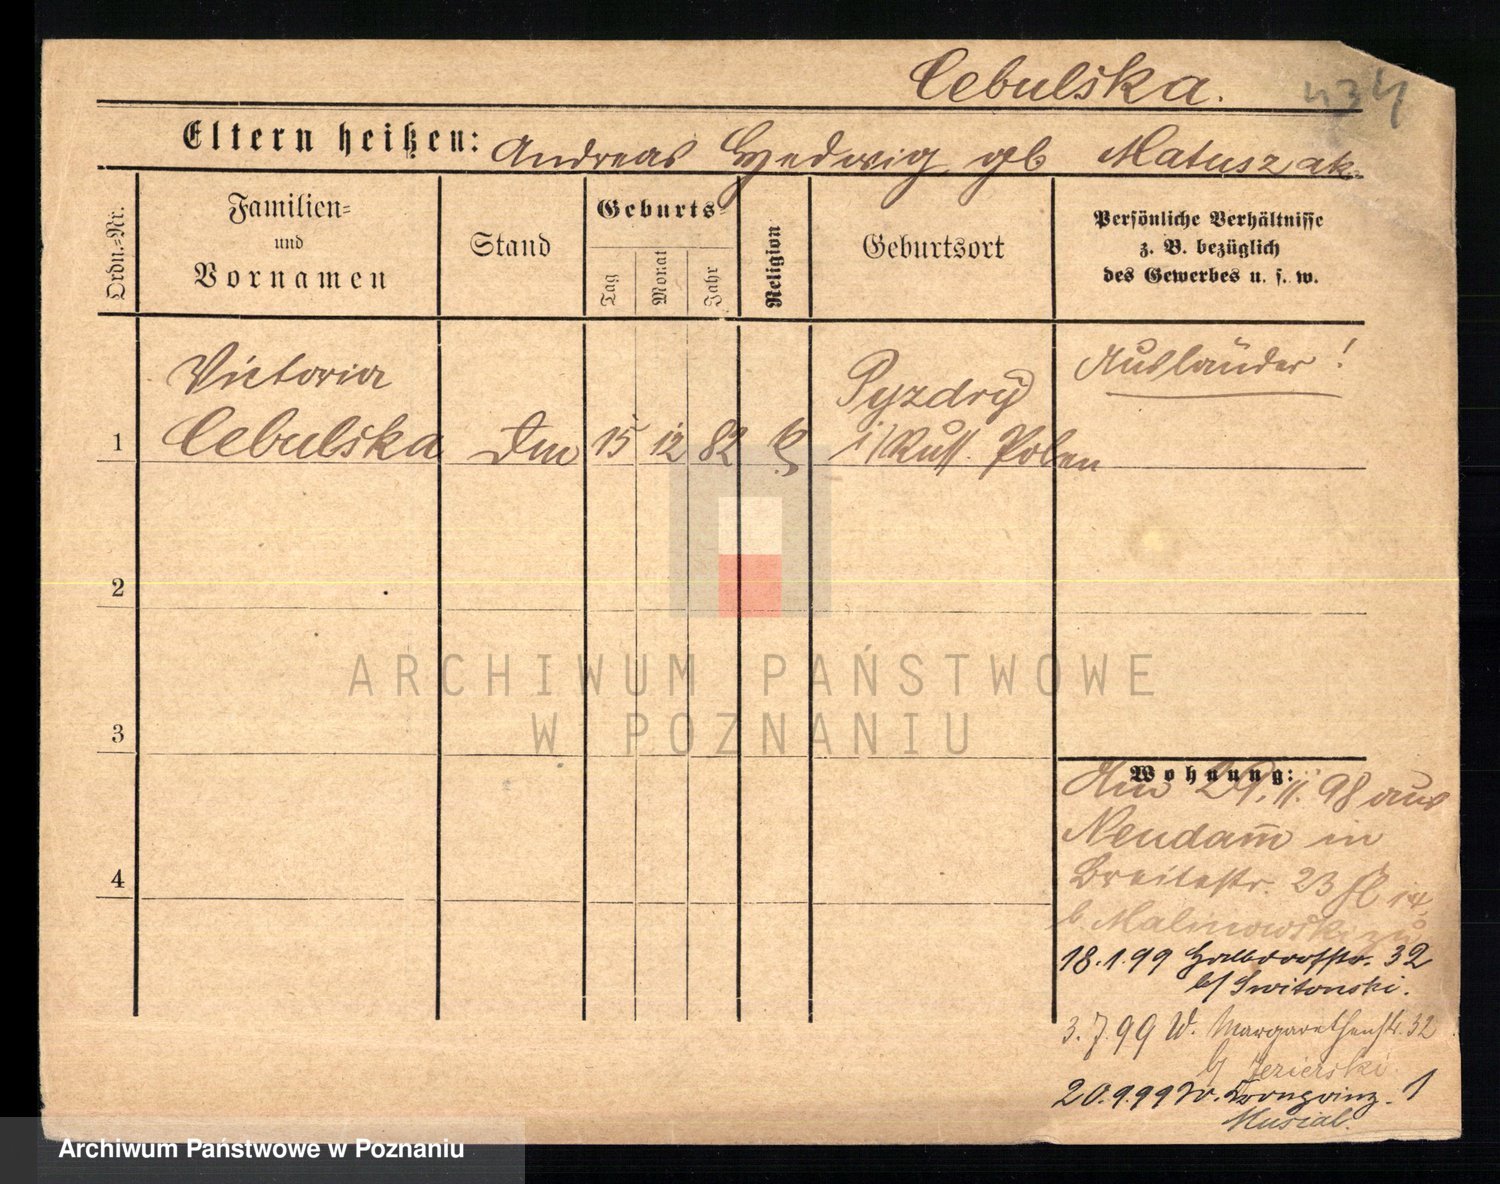 Cebulska.
434
Eltern heißen: Andreas Hedwig gb Matuszak.
Ordn.-Nr.
Familien-
und
Vornamen
Stand
Geburts-
Tag
Monat
Jahr
Religion
Geburtsort
Persönliche Verhältnisse
z. B. bezüglich
des Gewerbes u. s. w.
Victoria
Pyzdry
Ausländer!
1 Cebulska Dm 15 12 82 k i/Russ. Polen
2
3
4
ARCHIWUM PAŃSTWOWE
W POZNANIU
Wohnung:
29. 11. 98 aus
Neudam̄ in
Breitestr. 23
b. Malinowski
18.1.99 Halbdorfstr. 32
b/ Switonski.
3.7.99 W. Margarethenstr. 32
b/ Jezierski.
20.9.99 W. Kronprinz. 1
Musial.
Archiwum Państwowe w Poznaniu